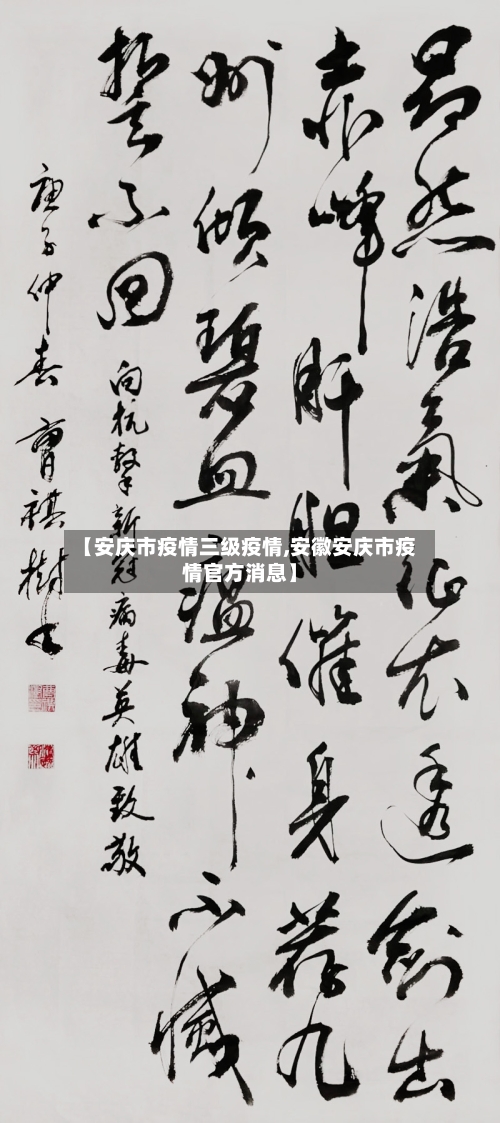 昂然浩氣征衣透劍出
赤峰肝胆催身荐九
州倾碧血瘟神不滅
誓不回
向抗擊新冠病毒英雄致敬
庚子仲春曹祺樹书
【安庆市疫情三级疫情,安徽安庆市疫
情官方消息】